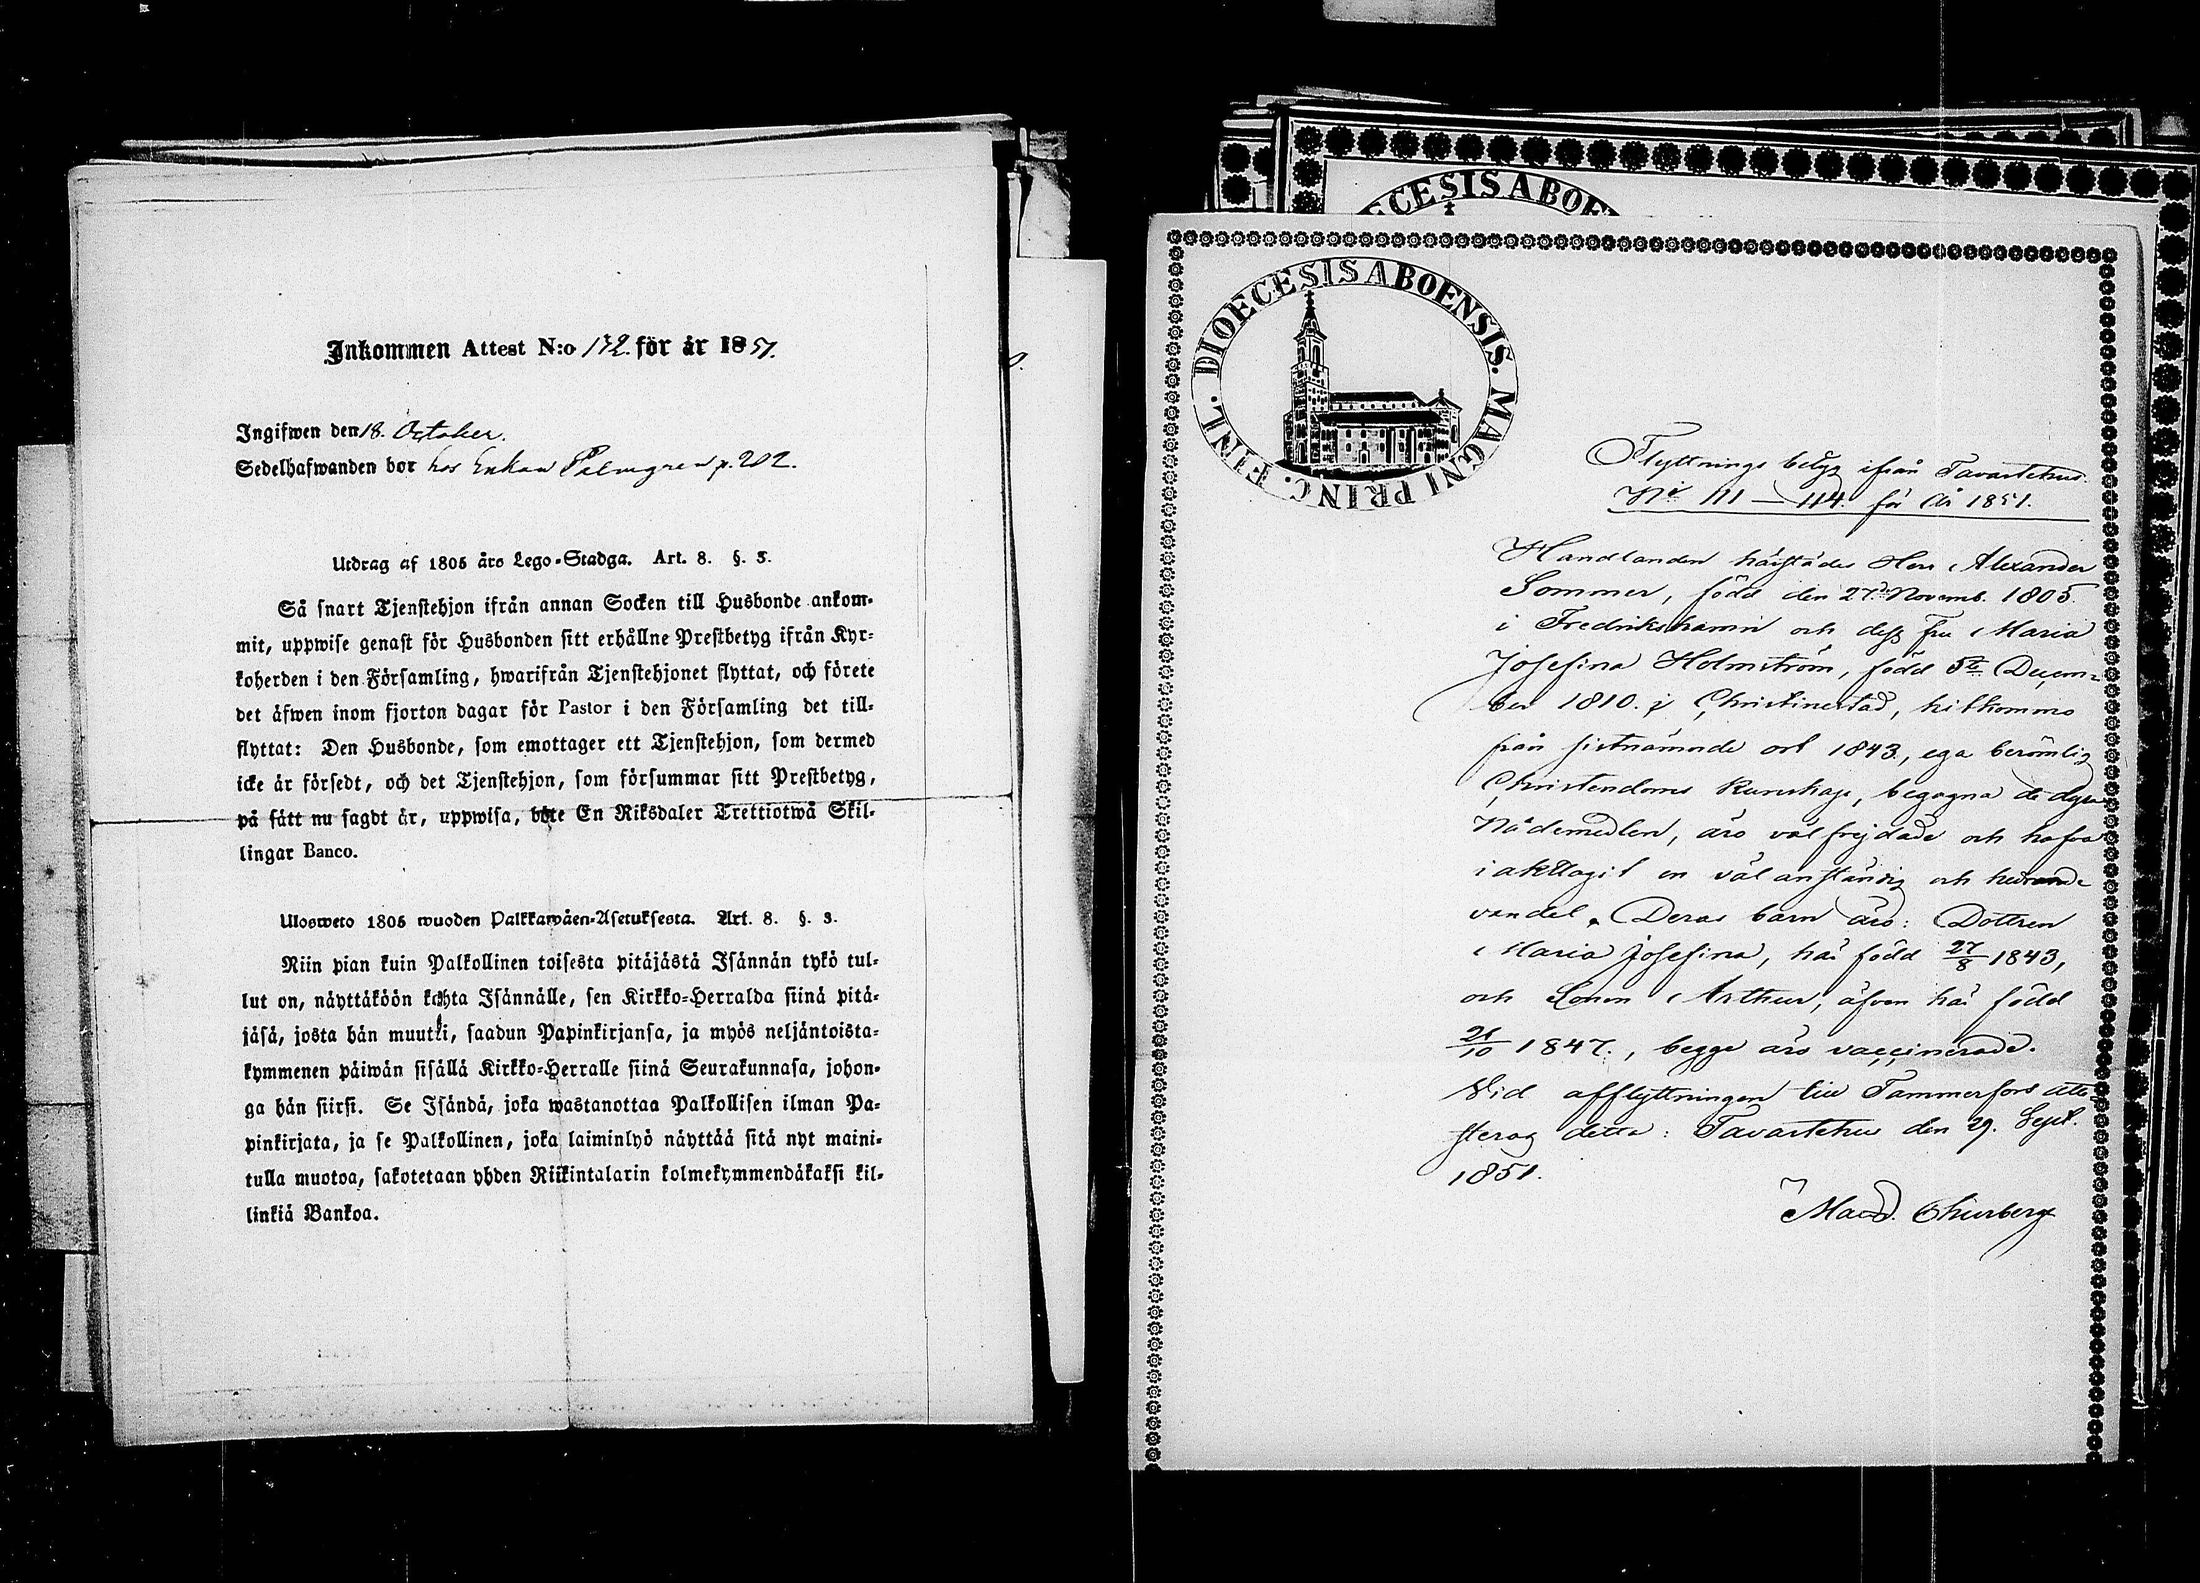 Inkommen Attest N:o 172. för år 1851.
Ingifwen den 18. October.
Sedelhafwanden bor hos Enkan Palmgren p. 202.
Utdrag af 1805 års Lego-Stadga. Art. 8. §. 3.
Så snart Tjenstehjon ifrån annan Socken till Husbonde ankom-
mit, uppwise genast för Husbonden sitt erhållne Prestbetyg ifrån Kyr-
koherden i den Församling, hwarifrån Tjenstehjonet flyttat, och förete
det äfwen inom fjorton dagar för Pastor i den Församling det till-
flyttat: Den Husbonde, som emottager ett Tjenstehjon, som dermed
icke är försedt, och det Tjenstehjon, som försummar sitt Prestbetyg,
på sätt nu sagdt är, uppwisa, böte En Riksdaler Trettiotwå Skil-
lingar Banco.
Ulosweto 1805 wuoden Palkkawäen-Asetuksesta. Art. 8. §. 3.
Niin pian kuin Palkollinen toisesta pitäjästä Isännän tykö tul-
lut on, näyttäköön kohta Isännälle, sen Kirkko-Herralda siinä pitä-
jäsä, josta hän muutti, saadun Papinkirjansa, ja myös neljäntoista-
kymmenen päiwän sisällä Kirkko-Herralle siinä Seurakunnasa, johon-
ga hän siirsi. Se Isändä, joka wastanottaa Palkollisen ilman Pa-
pinkirjata, ja se Palkollinen, joka laiminlyö näyttää sitä nyt maini-
tulla muotoa, sakotetaan yhden Riikintalarin kolmekymmendäkaksi kil-
linkiä Bankoa.
DIOECESIS ABOEN
DIOECESIS ABOENSIS. MAGNI PRINC. FINL.
Flyttnings betyg ifrån Tavastehus
No 111 — 114. för År 1851.
Handlanden härstädes Herr Alexander
Sommer, född den 27. Novemb. 1805.
i Fredrikshamn och dess fru Maria
Josefina Holmström, född 5te Decem-
ber 1810. i Christinestad, hitkomne
från sistnämnde ort 1843, ega berömlig
Christendoms kunskap, begagna de dyra
Nådemedlen, äro välfrejdade och hafva
iakttagit en väl anständig och hedrande
vandel. Deras barn äro: Dottren
Maria Josefina, här född 27/8 1843,
och Sonen Arthur, äfven här född
21/10 1847., begge äro vaccinerade.
Vid afflyttningen till Tammerfors atte-
steras detta: Tavastehus den 29. Sept.
1851.
Thurberg